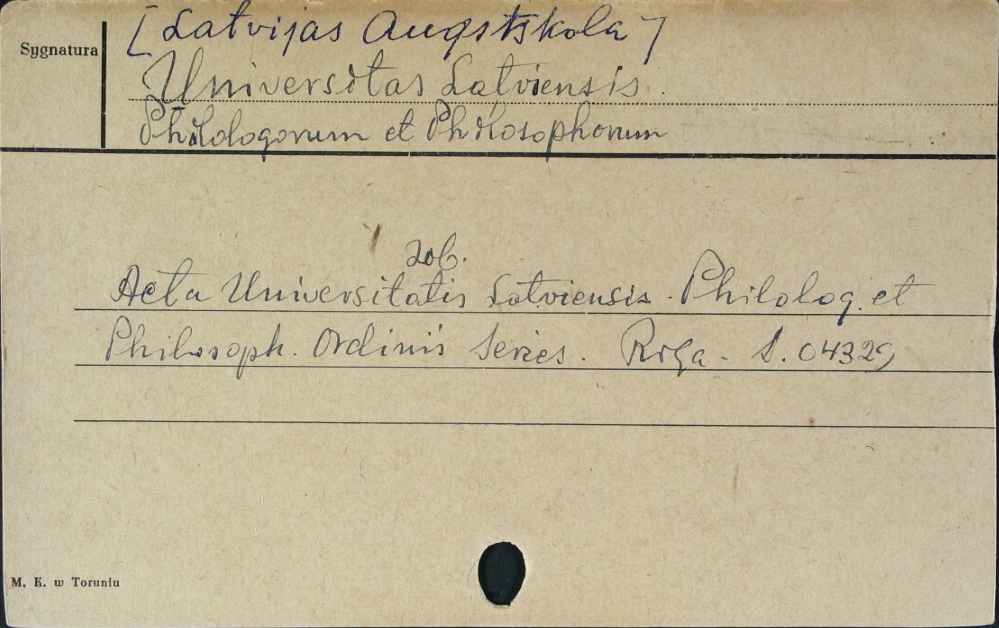 [Latvijas Augstskola]
Sygnatura
Universitas Latviensis.
Philologorum et Philosophorum
zob.
Acta Universitatis Latviensis. Philolog. et
Philosoph. Ordinis Series. Riga. S. 04329
M. K. w Toruniu